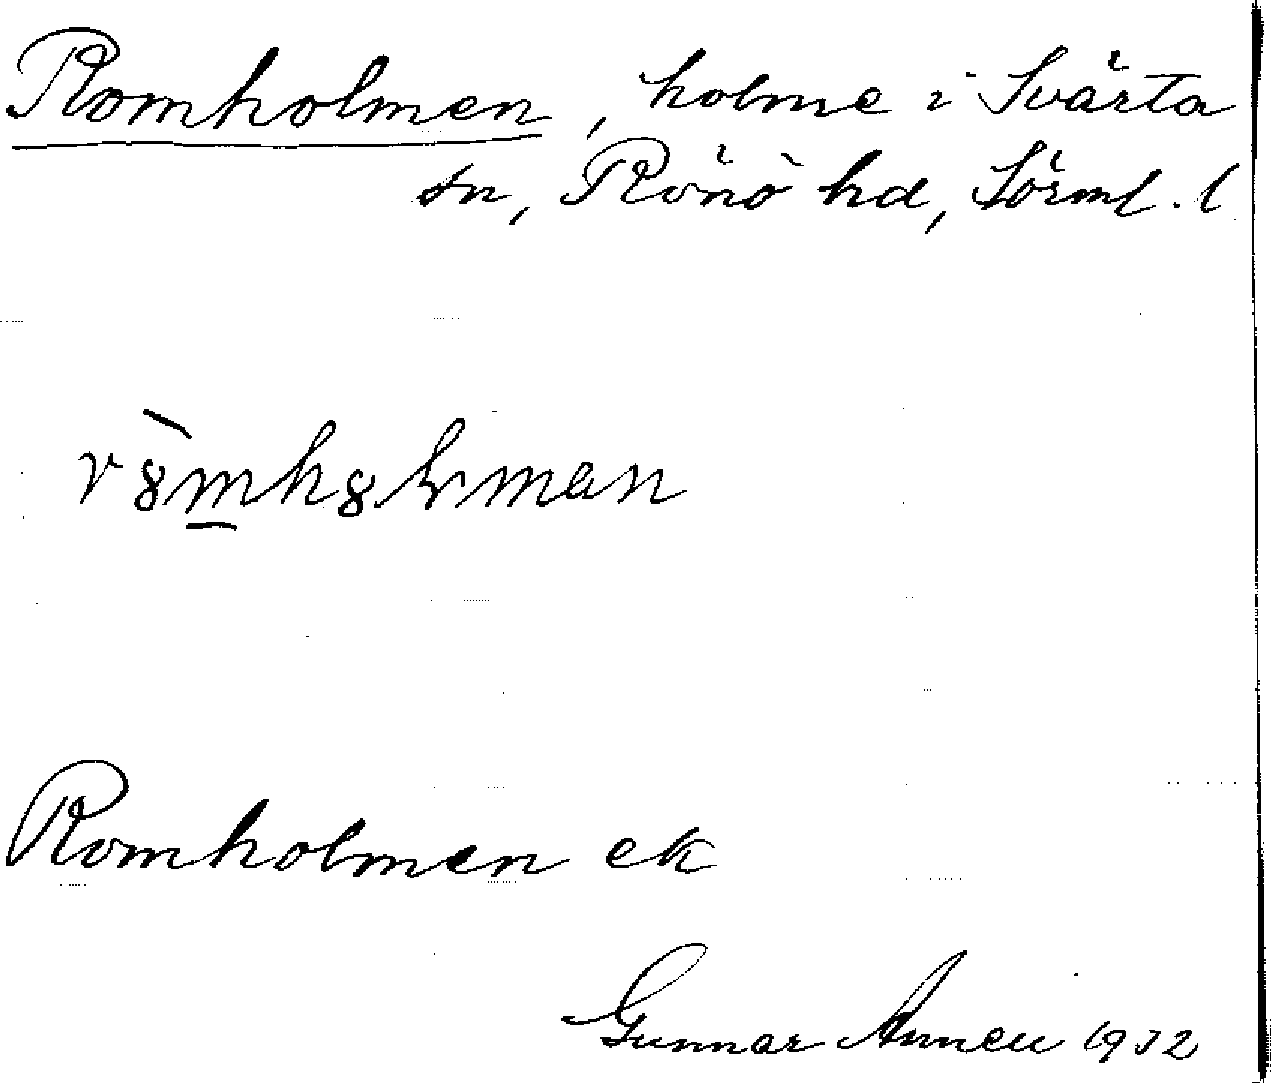 Romholmen, holme i Svärta
sn, Rönö hd, Sörml. l
Romholmen ek
Gunnar 1932